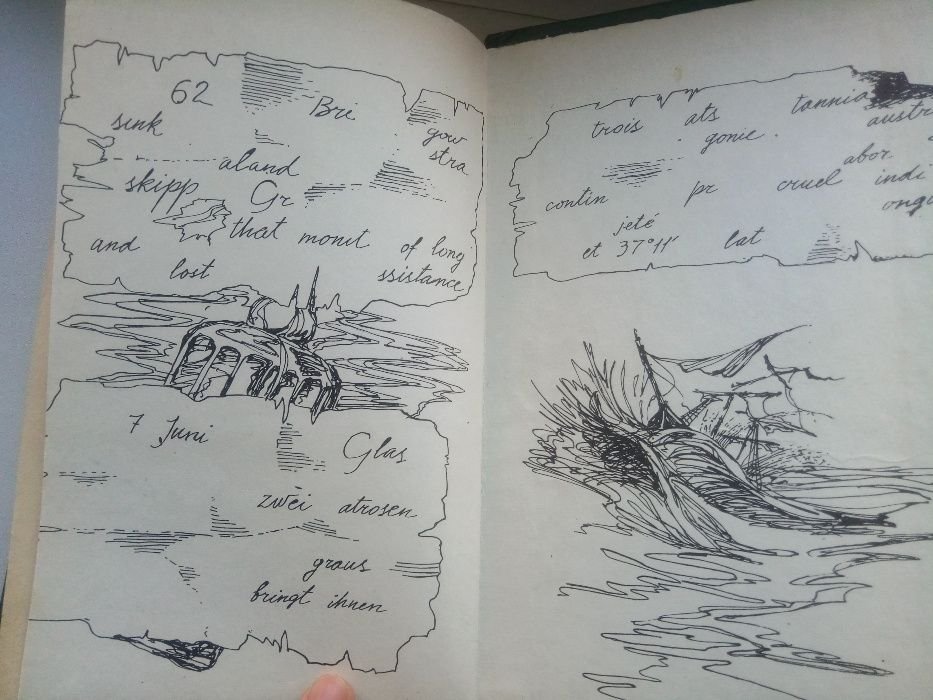 62 Bri gow
sink stra
aland
skipp Gr
that monit of long
and ssistance
lost
7 Juni Glas
zwei atrosen
graus
bringt ihnen
trois ats tannia
gonie austr
abor
contin pr cruel indi
jeté ongi
et 37°11' lat